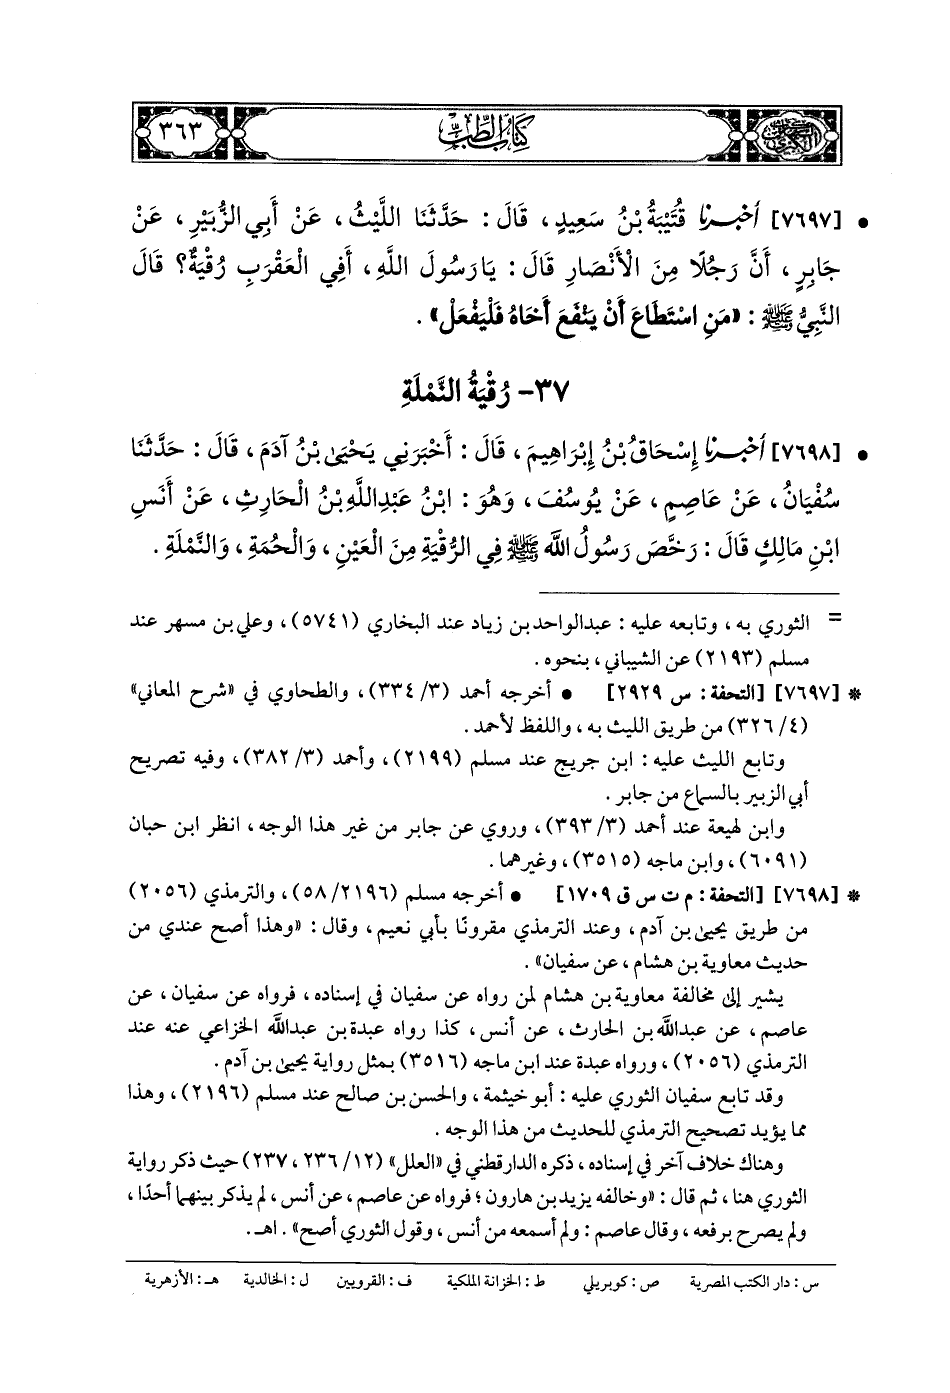 كتاب الطب
٣٦٣
• [٧٦٩٧] أخبرنا قُتَيْبَةُ بْنُ سَعِيدٍ ، قَالَ : حَدَّثَنَا اللَّيْثُ ، عَنْ أَبِي الزُّبَيْرِ ، عَنْ
جَابِرٍ ، أَنَّ رَجُلًا مِنَ الْأَنْصَارِ قَالَ : يَا رَسُولَ اللَّهِ ، أَفِي الْعَقْرَبِ رُقْيَةٌ؟ قَالَ
النَّبِيُّ ﷺ : «مَنِ اسْتَطَاعَ أَنْ يَنْفَعَ أَخَاهُ فَلْيَفْعَلْ» .
٣٧- رُقْيَةُ النَّمْلَةِ
• [٧٦٩٨] أخبرنا إِسْحَاقُ بْنُ إِبْرَاهِيمَ ، قَالَ : أَخْبَرَنِي يَحْيَىٰ بْنُ آدَمَ ، قَالَ : حَدَّثَنَا
سُفْيَانُ ، عَنْ عَاصِمٍ ، عَنْ يُوسُفَ ، وَهُوَ : ابْنُ عَبْدِاللَّهِ بْنِ الْحَارِثِ ، عَنْ أَنَسِ
ابْنِ مَالِكٍ قَالَ : رَخَّصَ رَسُولُ اللَّه ﷺ فِي الرُّقْيَةِ مِنَ الْعَيْنِ ، وَالْحُمَةِ ، وَالنَّمْلَةِ .
= الثوري به ، وتابعه عليه : عبدالواحد بن زياد عند البخاري (٥٧٤١) ، وعلي بن مسهر عند
مسلم (٢١٩٣) عن الشيباني ، بنحوه .
* [٧٦٩٧] [التحفة: س ٢٩٢٩] • أخرجه أحمد (٣/ ٣٣٤) ، والطحاوي في «شرح المعاني»
(٤/ ٣٢٦) من طريق الليث به ، واللفظ لأحمد .
وتابع الليث عليه : ابن جريج عند مسلم (٢١٩٩) ، وأحمد (٣/ ٣٨٢) ، وفيه تصريح
أبي الزبير بالسماع من جابر .
وابن لهيعة عند أحمد (٣/ ٣٩٣) ، وروي عن جابر من غير هذا الوجه ، انظر ابن حبان
(٦٠٩١) ، وابن ماجه (٣٥١٥) ، وغيرهما .
* [٧٦٩٨] [التحفة: م ت س ق ١٧٠٩] • أخرجه مسلم (٢١٩٦/ ٥٨) ، والترمذي (٢٠٥٦)
من طريق يحيىٰ بن آدم ، وعند الترمذي مقرونًا بأبي نعيم ، وقال : «وهذا أصح عندي من
حديث معاوية بن هشام ، عن سفيان» .
يشير إلى مخالفة معاوية بن هشام لمن رواه عن سفيان في إسناده ، فرواه عن سفيان ، عن
عاصم ، عن عبداللَّه بن الحارث ، عن أنس ، كذا رواه عبدة بن عبداللَّه الخزاعي عنه عند
الترمذي (٢٠٥٦) ، ورواه عبدة عند ابن ماجه (٣٥١٦) بمثل رواية يحيىٰ بن آدم .
وقد تابع سفيان الثوري عليه : أبو خيثمة ، والحسن بن صالح عند مسلم (٢١٩٦) ، وهذا
مما يؤيد تصحيح الترمذي للحديث من هذا الوجه .
وهناك خلاف آخر في إسناده ، ذكره الدارقطني في «العلل» (١٢/ ٢٣٦ ، ٢٣٧) حيث ذكر رواية
الثوري هنا ، ثم قال : «وخالفه يزيد بن هارون ؛ فرواه عن عاصم ، عن أنس ، لم يذكر بينهما أحدًا ،
ولم يصرح برفعه ، وقال عاصم : ولم أسمعه من أنس ، وقول الثوري أصح» . اهـ .
س : دار الكتب المصرية ص : كوبريلي ط : الخزانة الملكية ف : القرويين ل : الخالدية هـ : الأزهرية